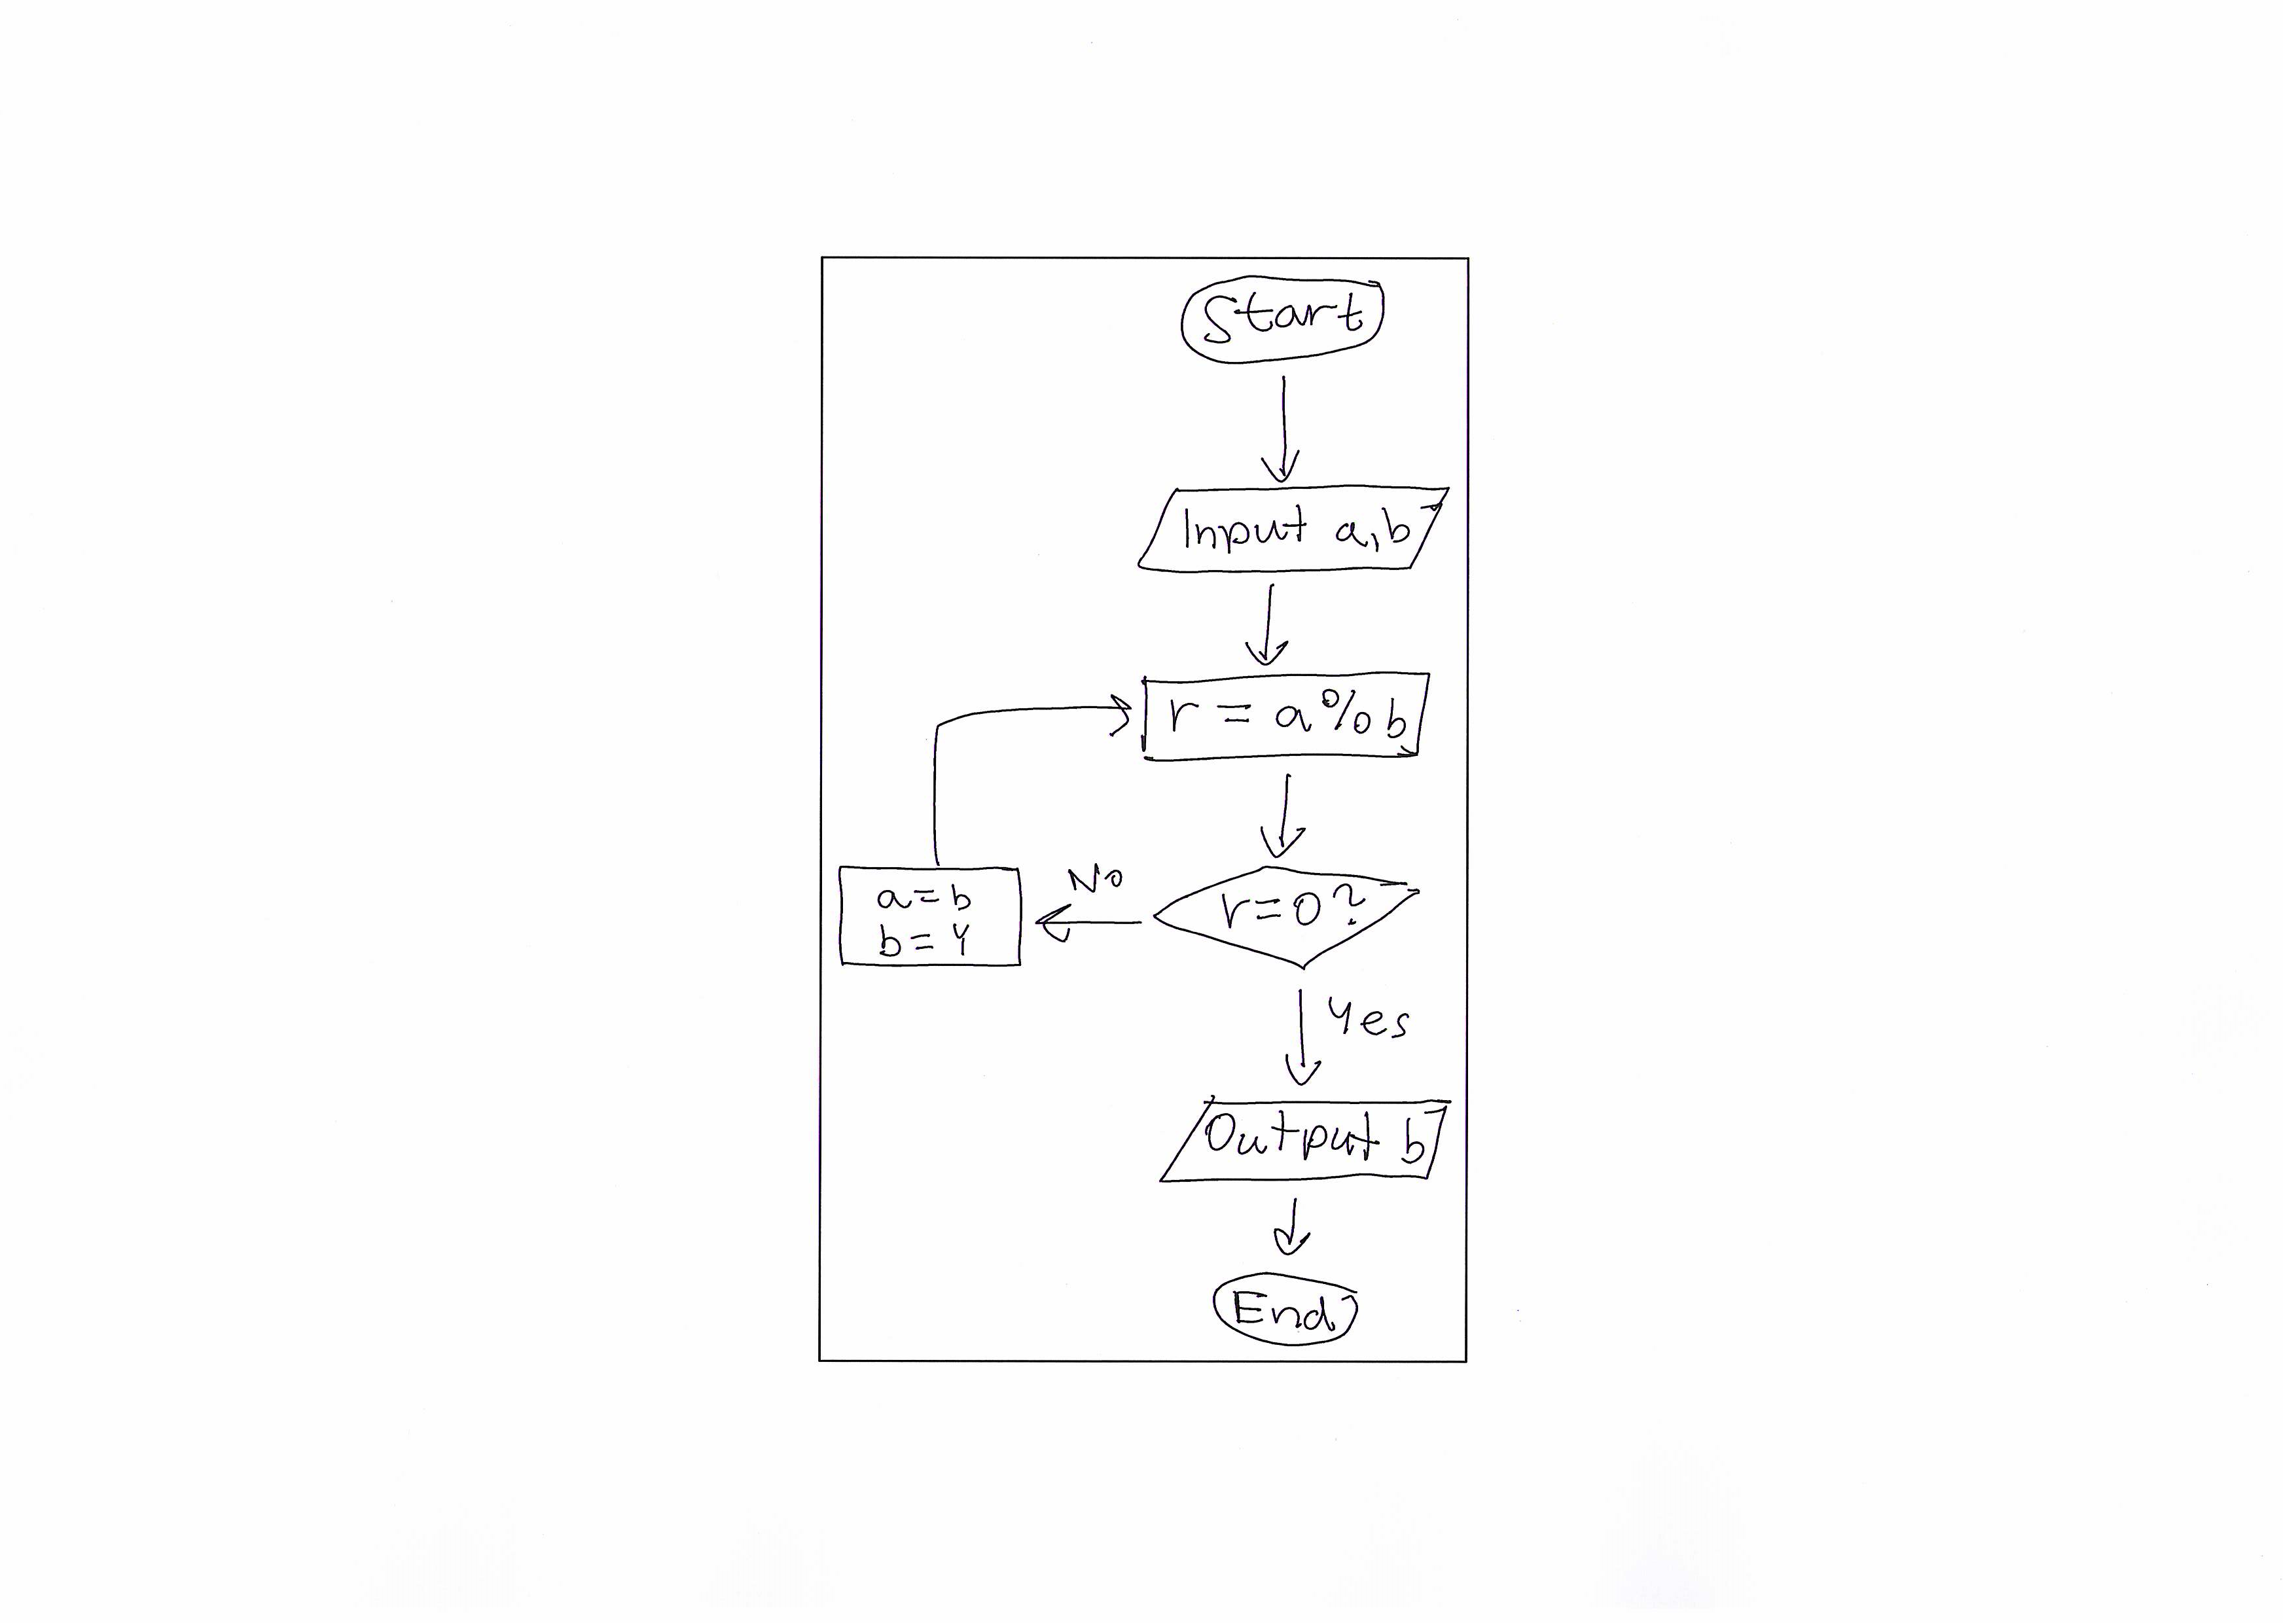 Start
Input a,b
r = a%b
r=0?
No
a=b
b=r
Yes
Output b
End